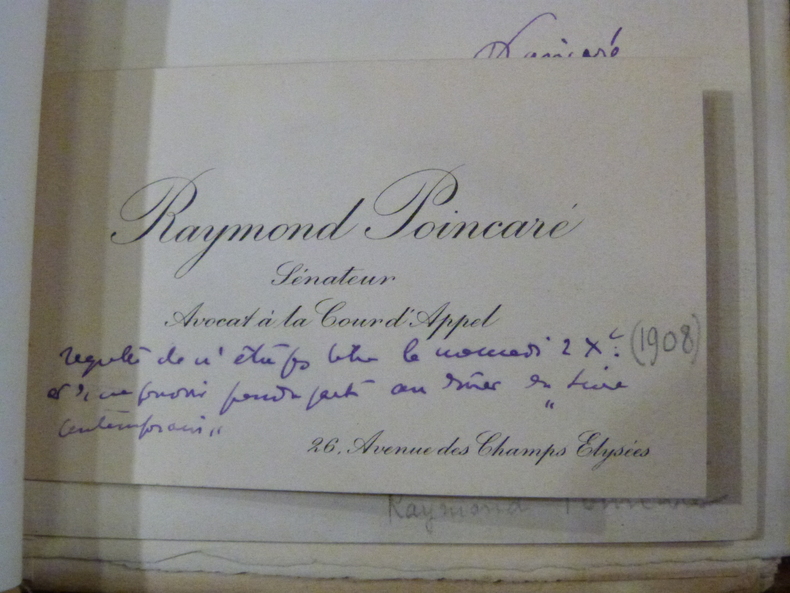 Poincaré
Raymond Poincaré
Sénateur
Avocat à la Cour d'Appel
regrette de n'être pas libre le mercredi 2 Xe: (1908)
et de ne pouvoir prendre part au dîner du "Livre
contemporain"
26, Avenue des Champs Elysées
Raymond Poincaré